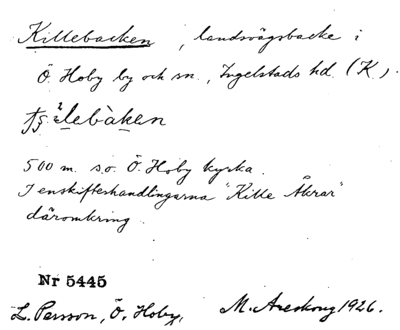 Killebacken, landsvägsbacke i
Ö. Hoby by och sn., Ingelstads hd. (K).
500 m. s.o. Ö. Hoby kyrka.
I enskifteshandlingarna "Kille Åkrar"
däromkring.
Nr 5445
L. Persson, Ö. Hoby, M. Areskoug 1926.